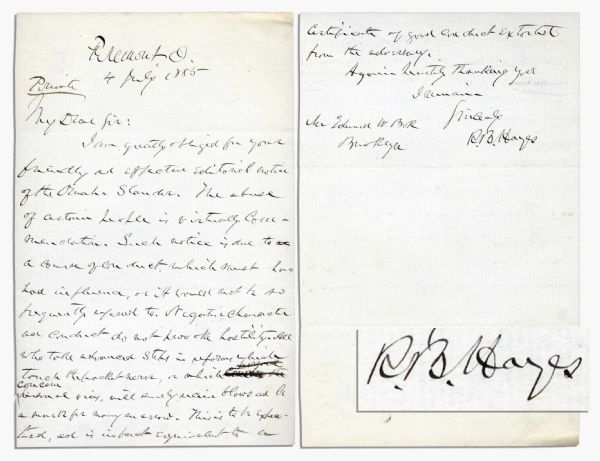 Fremont O.
4 July 1885
Private
My Dear Sir:
I am greatly obliged for your
friendly and effective editorial notice
of the Omaha Slander. The abuse
of certain people is virtually Com-
mendation. Such notice is due to
a course of conduct, which must have
had influence, or it would not be so
frequently referred to. Negative characters
and conduct do not provoke hostility. All
who take advanced steps in reform which
touch the pocket nerve, or which
concern
personal vices, will surely receive blows and be
a mark for many an arrow. This is to be expec-
ted, and is in fact equivalent to a
Certificate of good conduct extorted
from the adversary.
Again heartily thanking you
I remain
Sincerely
Mr Edward W Bok
R.B. Hayes
Brooklyn
R.B. Hayes